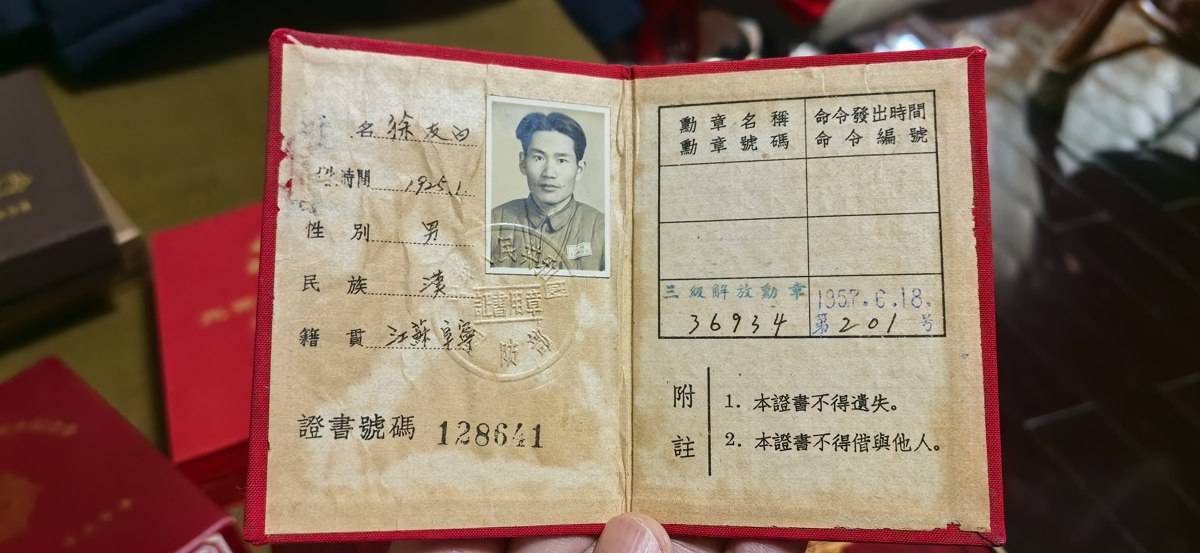 名 徐友田
時間 1925.1.
性別 男
民族 漢
籍貫 江蘇阜寧
證書號碼 128641
證書用章
勳章名稱
勳章號碼
命令發出時間
命令編號
三級解放勳章
36934
1957.6.18.
第201号
附註
1. 本證書不得遺失。
2. 本證書不得借與他人。